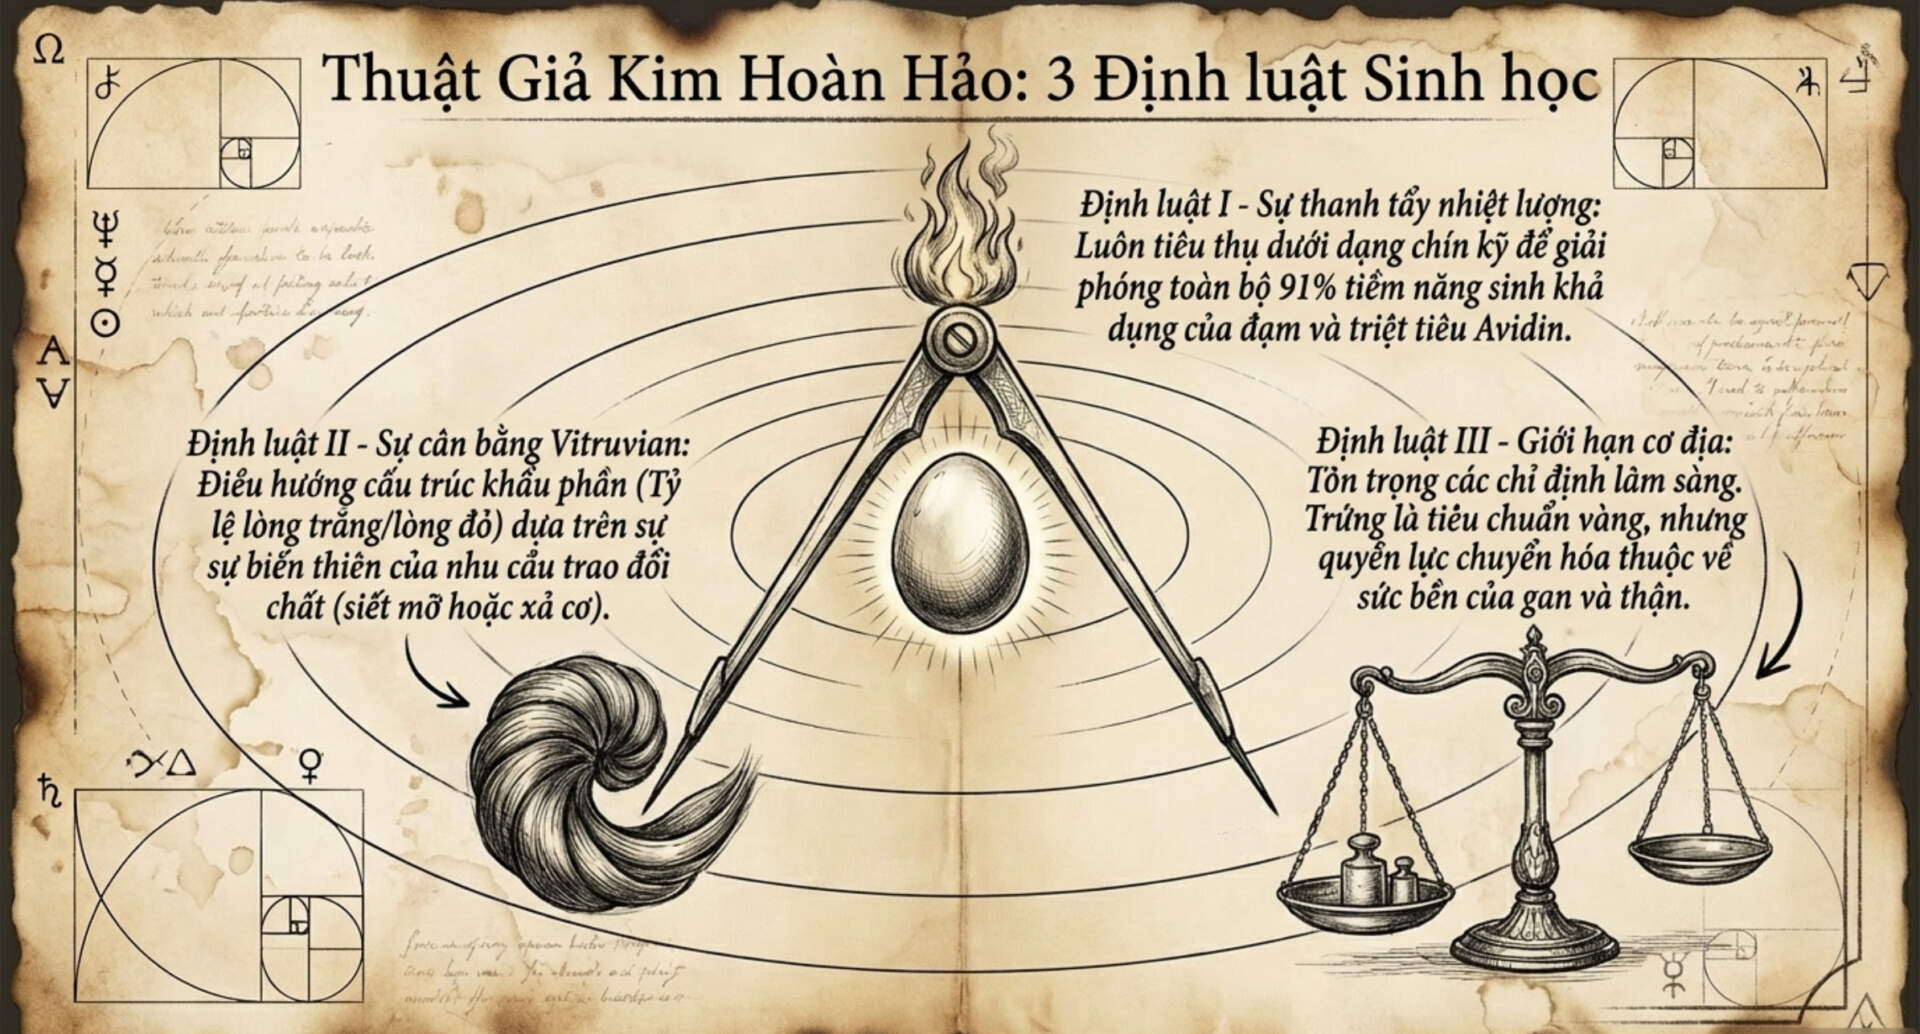 Thuật Giả Kim Hoàn Hảo: 3 Định luật Sinh học
Định luật I - Sự thanh tẩy nhiệt lượng:
Luôn tiêu thụ dưới dạng chín kỹ để giải
phóng toàn bộ 91% tiềm năng sinh khả
dụng của đạm và triệt tiêu Avidin.
Định luật II - Sự cân bằng Vitruvian:
Điều hướng cấu trúc khẩu phần (Tỷ
lệ lòng trắng/lòng đỏ) dựa trên sự
sự biến thiên của nhu cầu trao đổi
chất (siết mỡ hoặc xả cơ).
Định luật III - Giới hạn cơ địa:
Tôn trọng các chỉ định lâm sàng.
Trứng là tiêu chuẩn vàng, nhưng
quyền lực chuyển hóa thuộc về
sức bền của gan và thận.